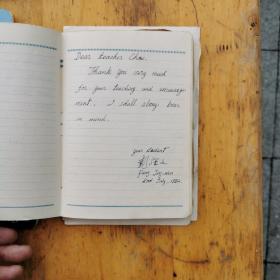 Dear teacher Chow.
Thank You very much
for your teaching and encourage-
ment. I shall alway bear
in mind.
your student
2nd July, 1980.